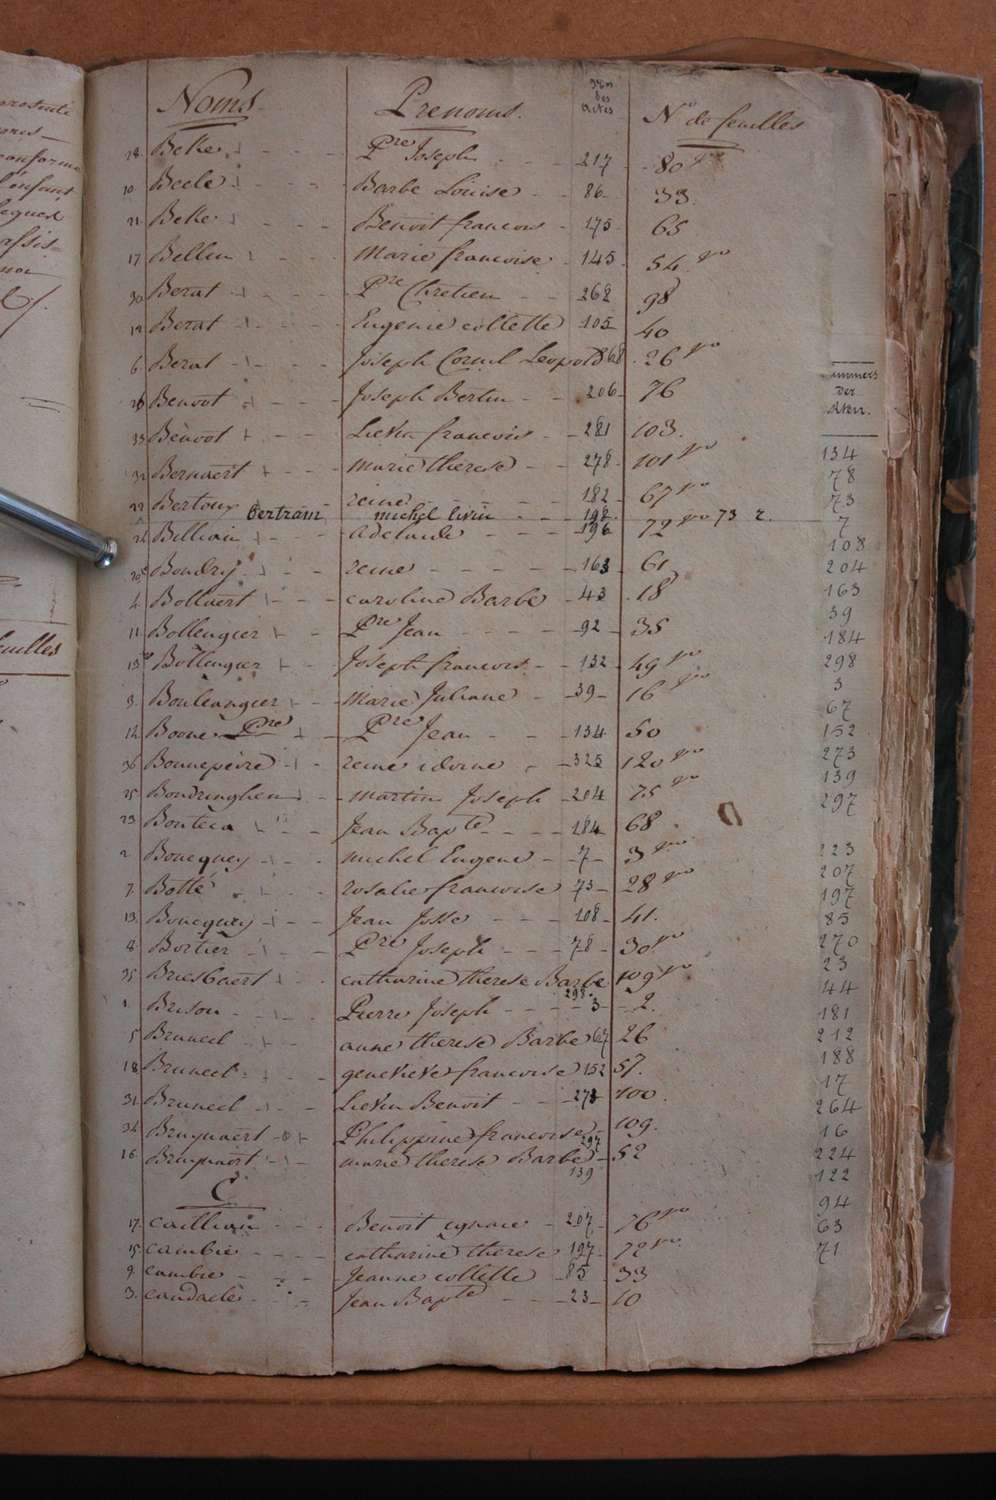 Noms Prenoms. Nos des Actes No de feuilles
18. Beke Pre Joseph 217 80 vo
10. Beele Barbe Louise 86 33.
21. Beke Benoit francois 175 65
17 Bellen Marie francoise 145 54. vo
30 Berat Pre Chretien 268 98
12 Berat Eugenie collette 105 40
6. Berat Joseph Cornil Leopold 68 26 vo
26 Benoot Joseph Bertin 206 76
33 Bénoot Lievin francois 281 103.
32 Bernaert marie thérèse 278 101 vo
22 Bertoux reine 182 67 vo
Bertram michel livin 198 73 r.
24 Billiau adelaide 196 72 vo
20 Boudry reine 163 61
4. Bollaert caroline Barbe 43 18
11 Bollengier Pre Jean 92 35
15 Bollengier Joseph francois 132 49 vo
3. Boulenngier marie Juliane 39 16 vo
16 Boone Pre Pre Jean 134 50
36 Bonnepeire reine idonne 325 120 vo
25 Boudringhen martin Joseph 204 75 vo
23 Bonteca Jean Bapte 184 68
2 Boucquey michel Eugene 7 3 vo
7. Botté rosalie francoise 73 28 vo
13. Boucquey Jean Josse 108 41.
8 Bortier Pre Joseph 78 30 vo
35 Briesbaert catharine therese Barbe 298. 109 vo
1. Brisou Pierre Joseph 3 2.
5 Bruneel anne therese Barbe 67 26
18. Bruneel genevieve francoise 152 57.
31 Bruneel Lievin Benoit 273 100
34 Bruynaert Philippine francoise 297 109.
16 Bruynaert marie therese Barbe 139 52
C
17. cailliau Benoit ignace 207 76 vo
15 cambie catharine therese 197 72 vo
9 cambie Jeanne collette 85 33
3. candaele Jean Bapte 23 10
nummers
der
Akten.
134
78
73
7
108
204
163
39
184
298
3
67
152
273
139
297
223
207
197
85
270
23
44
181
212
188
17
264
16
224
122
94
63
71